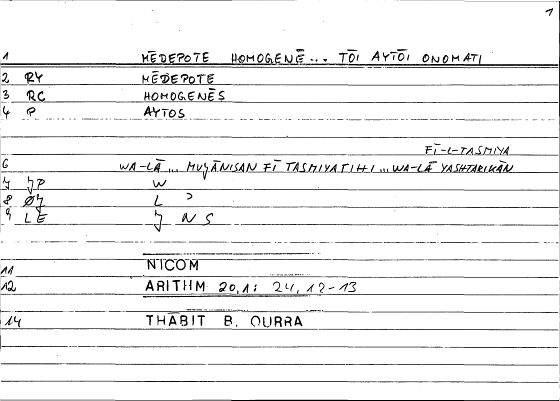 1
1 MĒDEPOTE HOMOGENĒ... TŌI AYTŌI ONOMATI
2 RY MĒDEPOTE
3 RC HOMOGENĒS
4 P AYTOS
FĪ-L-TASMIYA
6 WA-LĀ ... MUǦĀNISAN FĪ TASMIYATIHI ... WA-LĀ YASHTARIKĀN
7 P W
8 L ʾ
9 LE N S
11 NICOM
12 ARITHM 20,1: 24,12-13
14 THĀBIT B. QURRA